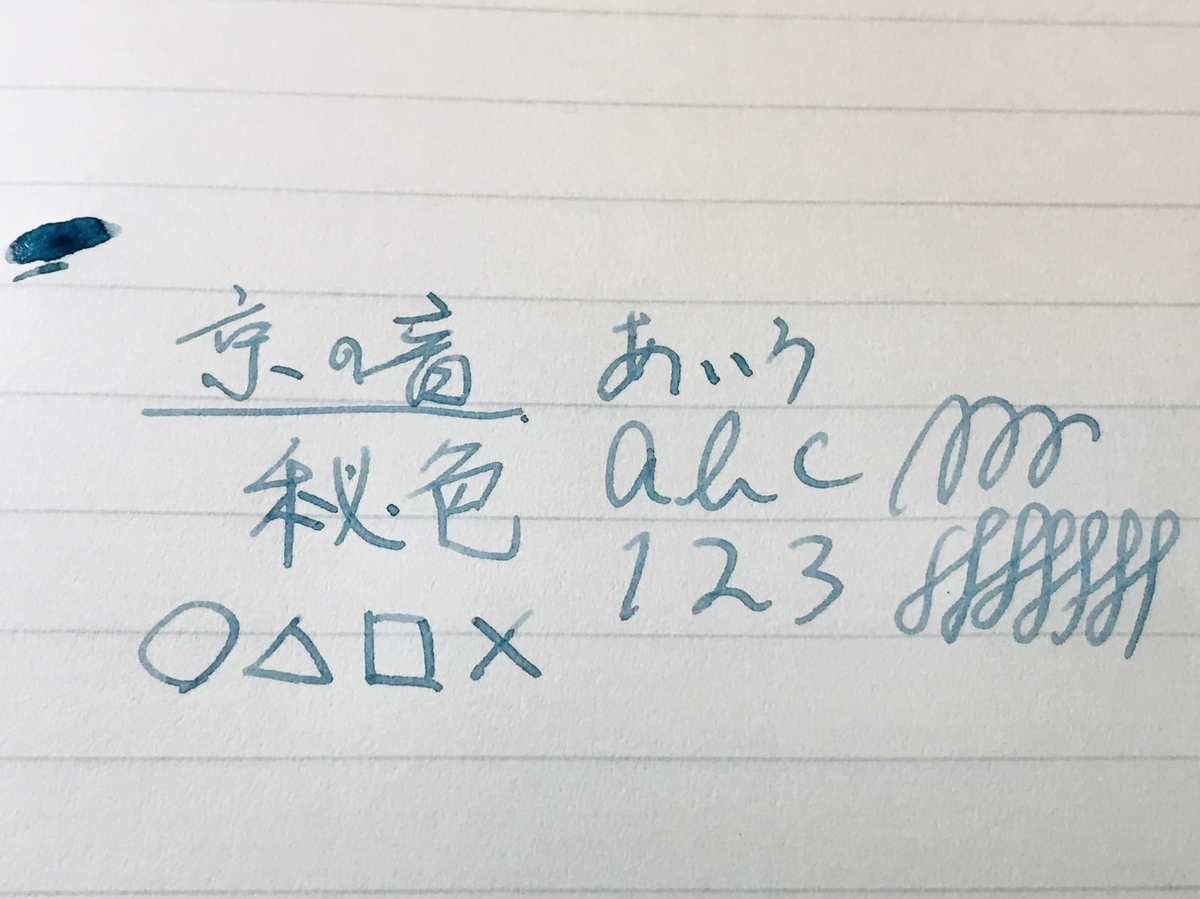 京の音
秘色
○△□×
あいう
abc
123